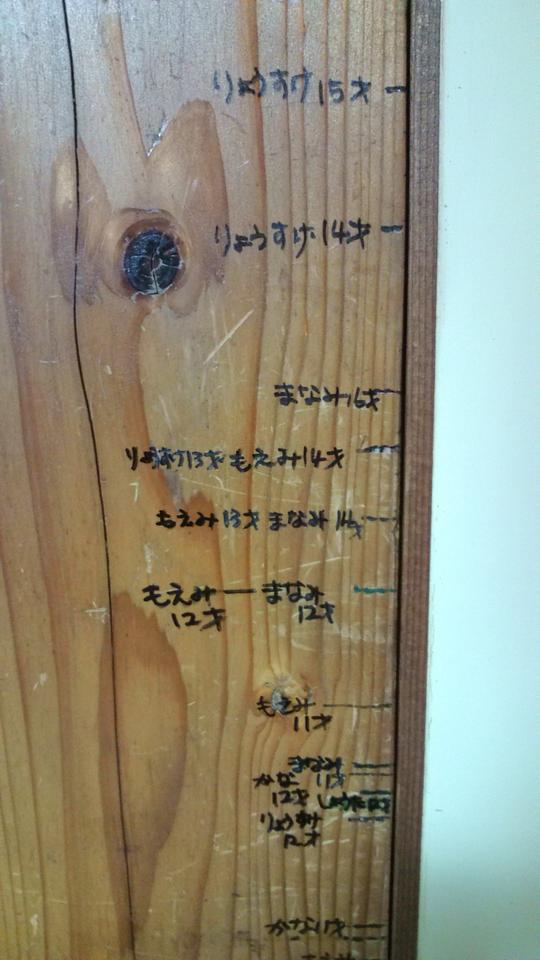 りょうすけ15才
りょうすけ14才
まなみ16才
りょうすけ13才 もえみ14才
もえみ13才 まなみ14才
もえみ — まなみ
12才 12才
もえみ
11才
まなみ
かな 11才
12才
りょうすけ
12才
かな11才